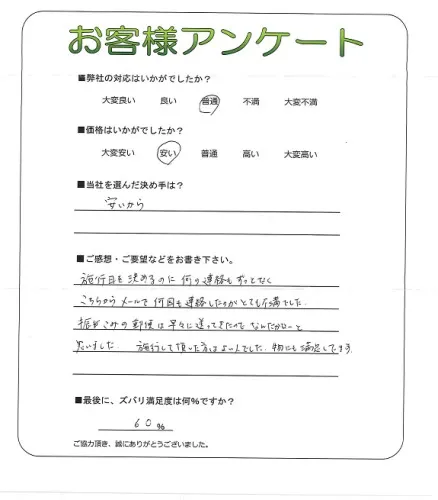 お客様アンケート
■弊社の対応はいかがでしたか？
大変良い 良い 普通 不満 大変不満
■価格はいかがでしたか？
大変安い 安い 普通 高い 大変高い
■当社を選んだ決め手は？
安いから
■ご感想・ご要望などをお書き下さい。
施行日を決めるのに何の連絡もずっとなく
こちらからメールで何回も連絡したのがとても不満でした.
振りこみの郵便は早々に送ってきたのも なんだかなーと
思いました. 施行して頂いた方はよい人でした. 物にも満足してます.
■最後に、ズバリ満足度は何％ですか？
60 %
ご協力頂き、誠にありがとうございました。